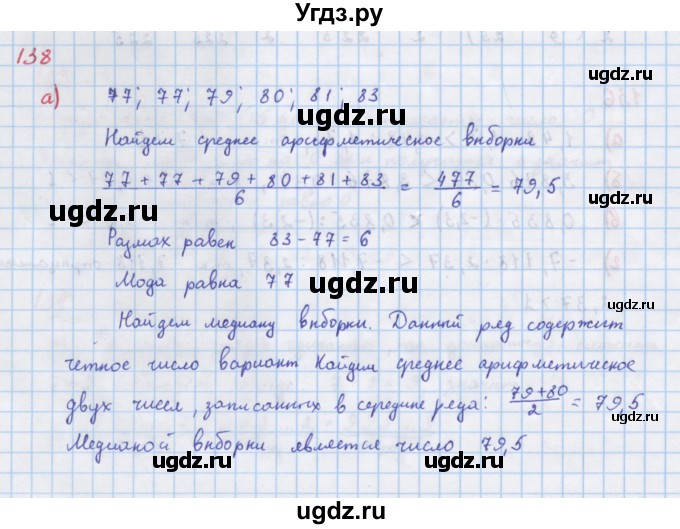 Угдз.ру
138
а) 77; 77; 79; 80; 81; 83
Найдем среднее арифметическое выборки
77 + 77 + 79 + 80 + 81 + 83 / 6 = 477 / 6 = 79,5
Размах равен 83 - 77 = 6
Мода равна 77
Найдем медиану выборки. Данный ряд содержит
четное число вариант Найдем среднее арифметическое
двух чисел, записанных в середине ряда: 79+80 / 2 = 79,5
Медианой выборки является число 79,5
ugdz.ru
ugdz.ru
ugdz.ru
ugdz.ru
ugdz.ru
ugdz.ru
ugdz.ru
ugdz.ru
ugdz.ru
ugdz.ru
ugdz.ru
ugdz.ru